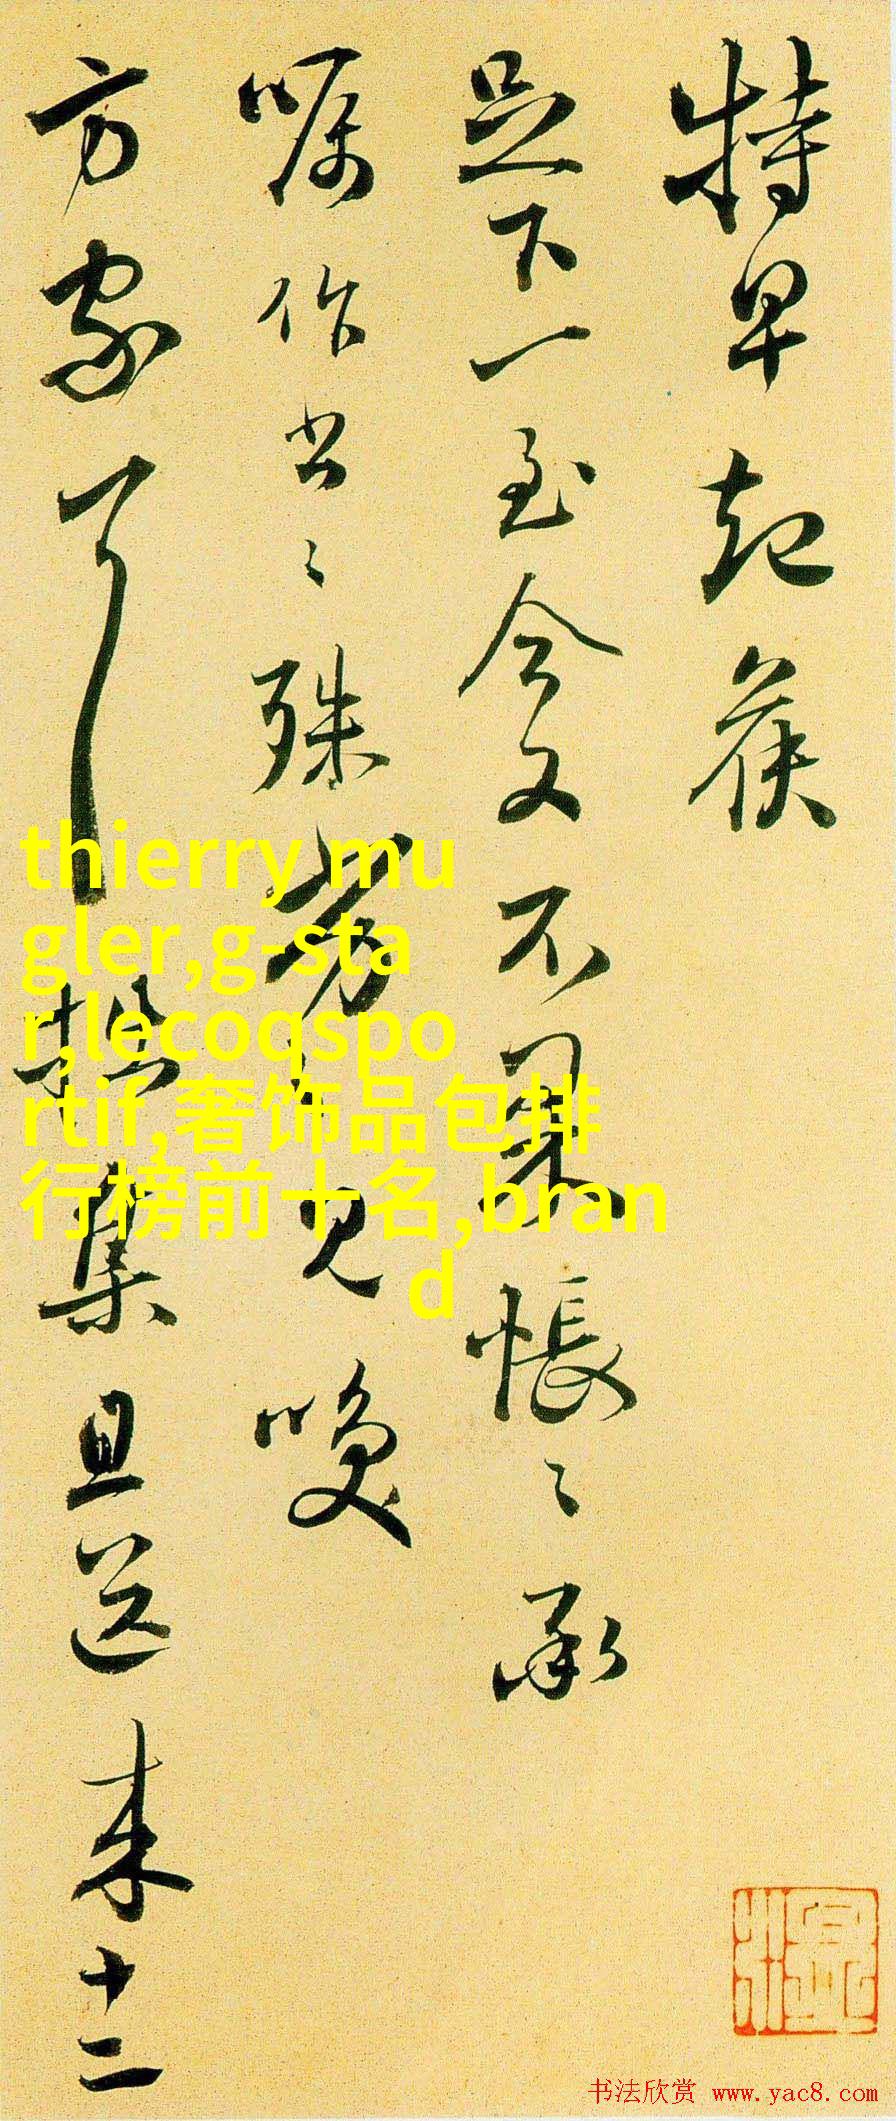 特早起候
足下一至今又不果悵〻承
嘱作书〻殊 见唤
方家 集且送来十二
thierry mu
gler,g-sta
r,lecoqspo
rtif,奢饰品包排
行榜前十名,bran
d
书法欣赏 www.yac8.com